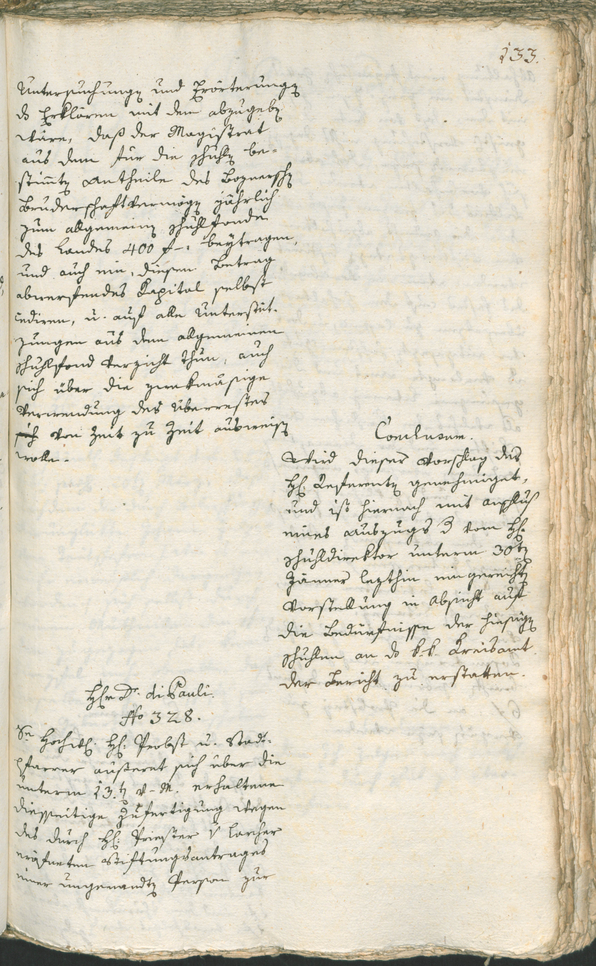 133.
Untersuchung und Erörterung
do Erklären mit dem abzugeben
wäre, daß der Magistrat
aus dem für die Schulen be-
stimten Antheile des Boznerschen
Bruderschaftvermögen jährlich
zum allgemeinen Schulfonde
des Landes 400 f: beytragen,
und auch ein, diesen Betrag
abwerfendes Kapital selbst
cediren, u. auf alle Unterstüt-
zungen aus dem allgemeinen
Schulfond Verzicht thun, auch
sich über die zwekmäsige
Verwendung des Überrestes
von Zeit zu Zeit ausweisen
wolle.
Conclusum.
Wird dieser Vorschlag des
H: Referenten genehmiget,
und ist hiernach mit Anschluß
eines Auszugs der vom H:
Schuldirektor unterm 30ten
Jänner lezthin eingereichten
Vorstellung in Absicht auf
die Bedürfnisse der hiesigen
Schulen an do k.k. Kreisamt
der Bericht zu erstatten.
Hhr Dr. di Pauli.
No 328.
Se Hochw: H: Probst u. Stadt-
pfarrer äußeret sich über die
unterm 13.ten v. M. erhaltene
diesseitige Zufertigung wegen
des durch H: Priester v Larcher
eröfneten Stiftungsantrages
einer ungenannten Person zur